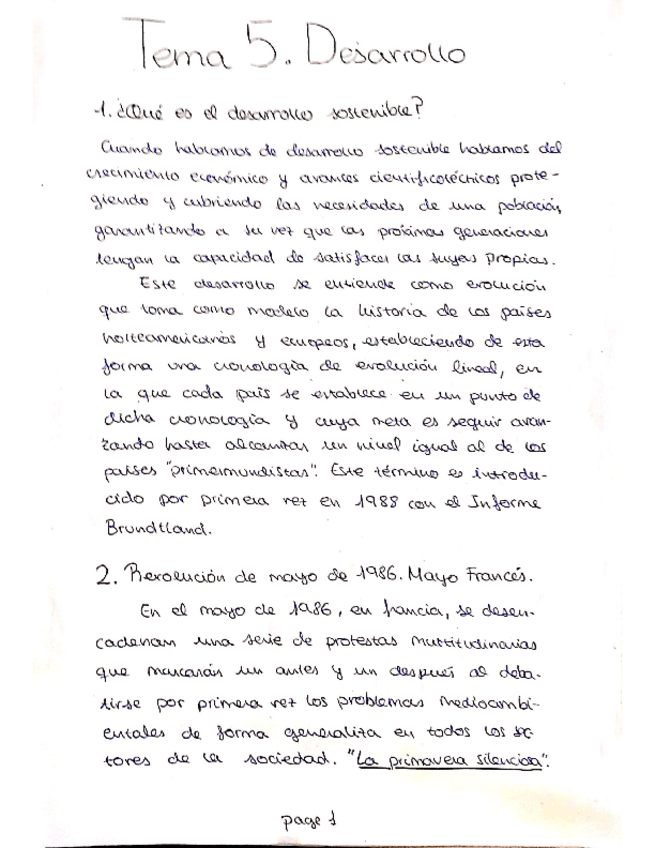 Tema 5. Desarrollo
1. ¿Qué es el desarrollo sostenible?
Cuando hablamos de desarrollo sostenible hablamos del
crecimiento económico y avances cientificotécnicos prote-
giendo y cubriendo las necesidades de una población,
garantizando a su vez que las próximas generaciones
tengan la capacidad de satisfacer las suyas propias.
Este desarrollo se entiende como evolución
que toma como modelo la historia de los países
norteamericanos y europeos, estableciendo de esta
forma una cronología de evolución lineal, en
la que cada país se establece en un punto de
dicha cronología y cuya meta es seguir avan-
zando hasta alcanzar un nivel igual al de los
países "primermundistas". Este término es introdu-
cido por primera vez en 1988 con el Informe
Brundtland.
2. Revolución de mayo de 1986. Mayo Francés.
En el mayo de 1986, en francia, se desen-
cadenan una serie de protestas multitudinarias
que marcarán un antes y un después al deba-
tirse por primera vez los problemas medioambi-
entales de forma generaliza en todos los sec
tores de la sociedad. "La primavera silenciosa".
page 1